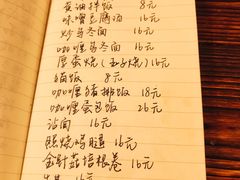 黄油拌饭 8元
味噌豆腐汤 16元
炒乌冬面 16元
咖喱乌冬面 16元
厚蛋烧(玉子烧)16元
猫饭 8元
咖喱猪排饭 18元
咖喱蛋包饭 26元
拉面 16元
照烧鸡腿 16元
金针菇培根卷 16元
16元